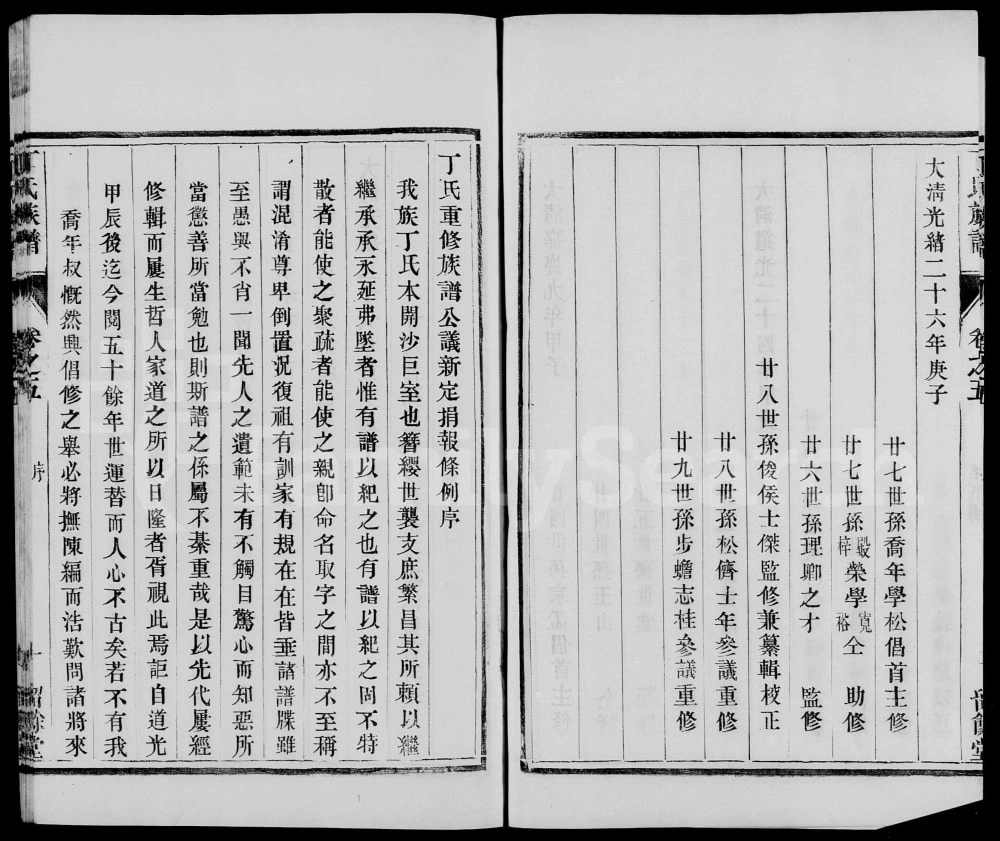 丁氏族譜
卷之五
大清光緒二十六年庚子
廿七世孫喬年學松倡首主修
廿七世孫殿梓榮學寬裕仝 助修
廿六世孫理卿之才 監修
廿八世孫俊侯士傑監修兼纂輯校正
廿八世孫松儕士年參議重修
廿九世孫步蟾志桂參議重修
丁氏重修族譜公議新定捐報條例序
我族丁氏本開沙巨室也簪纓世襲支庶繁昌其所賴以繼
繼承承永延弗墜者惟有譜以紀之也有譜以紀之固不特
散者能使之聚疏者能使之親卽命名取字之間亦不至稱
謂混淆尊卑倒置況復祖有訓家有規在在皆垂諸譜牒雖
至愚與不肖一聞先人之遺範未有不觸目驚心而知惡所
當懲善所當勉也則斯譜之係屬不綦重哉是以先代屢經
修輯而屢生哲人家道之所以日隆者胥視此焉詎自道光
甲辰後迄今閱五十餘年世運替而人心不古矣若不有我
喬年叔慨然興倡修之舉必將撫陳編而浩歎問諸將來
丁氏族譜
卷之五
序
一
留餘堂